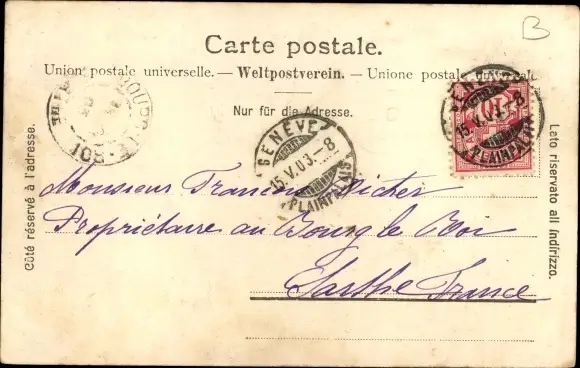 B
Carte postale.
Union postale universelle. — Weltpostverein. — Unione postale universale
Nur für die Adresse.
GENÈVE
15.V.03.-8
PLAINPALAIS
10
GENÈVE
15.V.03.-8
PLAINPALAIS
Côté réservé à l'adresse.
Lato riservato all indirizzo.
Monsieur Francois
Propriétaire au Bourg le Roi
Sarthe France